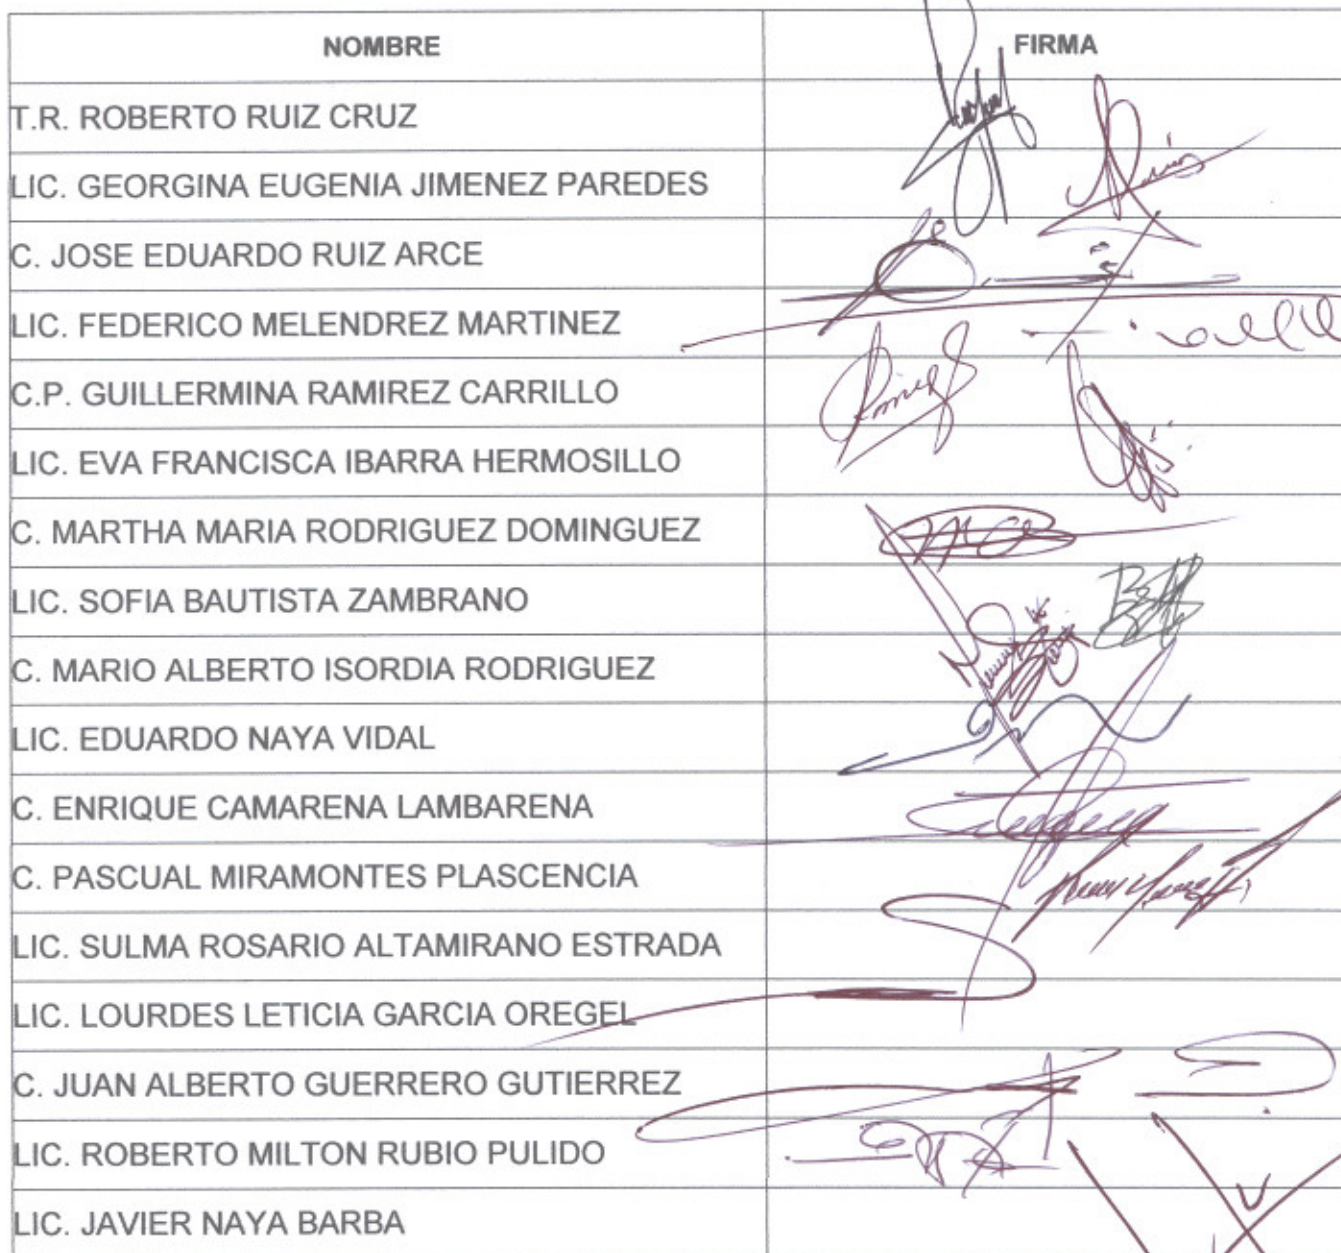 NOMBRE FIRMA
T.R. ROBERTO RUIZ CRUZ
LIC. GEORGINA EUGENIA JIMENEZ PAREDES
C. JOSE EDUARDO RUIZ ARCE
LIC. FEDERICO MELENDREZ MARTINEZ
C.P. GUILLERMINA RAMIREZ CARRILLO
LIC. EVA FRANCISCA IBARRA HERMOSILLO
C. MARTHA MARIA RODRIGUEZ DOMINGUEZ
LIC. SOFIA BAUTISTA ZAMBRANO
C. MARIO ALBERTO ISORDIA RODRIGUEZ
LIC. EDUARDO NAYA VIDAL
C. ENRIQUE CAMARENA LAMBARENA
C. PASCUAL MIRAMONTES PLASCENCIA
LIC. SULMA ROSARIO ALTAMIRANO ESTRADA
LIC. LOURDES LETICIA GARCIA OREGEL
C. JUAN ALBERTO GUERRERO GUTIERREZ
LIC. ROBERTO MILTON RUBIO PULIDO
LIC. JAVIER NAYA BARBA